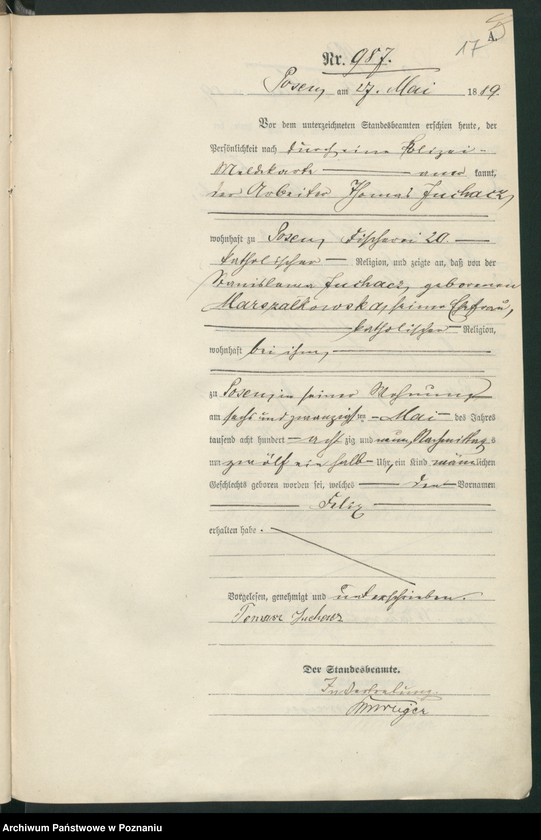 A.
17
Nr. 987.
Posen, am 27. Mai 1889.
Vor dem unterzeichneten Standesbeamten erschien heute, der
Persönlichkeit nach durch eine Polizei-
Meldekarte aner kannt,
der Arbeiter Thomas Juchacz,
wohnhaft zu Posen, Fischerei 20.
katholischer Religion, und zeigte an, daß von der
Stanislawa Juchacz, geborenen
Marszalkowska, seiner Ehefrau,
katholischer Religion,
wohnhaft bei ihm,
zu Posen, in seiner Wohnung
am sechs und zwanzigsten Mai des Jahres
tausend acht hundert acht zig und neun, Nachmittags
um zwölf ein halb Uhr, ein Kind männlichen
Geschlechts geboren worden sei, welches den Vornamen
Felix
erhalten habe.
Vorgelesen, genehmigt und unterschrieben.
Juchacz
Der Standesbeamte.
In Vertretung.
Archiwum Państwowe w Poznaniu